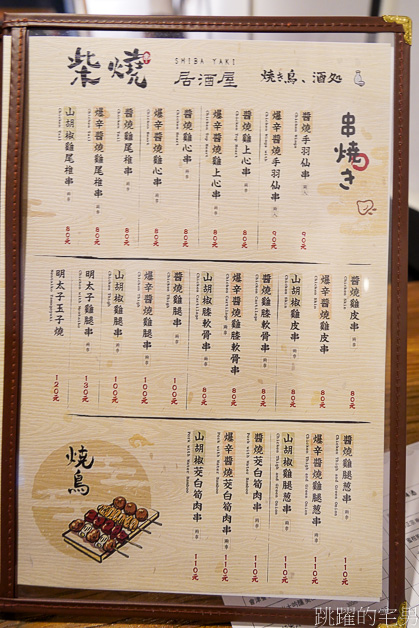 柴燒
SHIBA YAKI
居酒屋
焼き鳥、酒処
串焼き
醬燒手羽仙串
90元
爆辛醬燒手羽仙串
90元
醬燒雞上心串
80元
爆辛醬燒雞上心串
80元
醬燒雞心串
80元
爆辛醬燒雞心串
80元
醬燒雞尾椎串
80元
爆辛醬燒雞尾椎串
80元
山胡椒雞尾椎串
80元
醬燒雞皮串
Chicken Skin
80元
爆辛醬燒雞皮串
Chicken Skin
80元
山胡椒雞皮串
Chicken Skin
80元
醬燒雞膝軟骨串
Chicken Cartilage
80元
爆辛醬燒雞膝軟骨串
Chicken Cartilage
80元
山胡椒雞膝軟骨串
Chicken Cartilage
80元
醬燒雞腿串
Chicken Thigh
100元
爆辛醬燒雞腿串
Chicken Thigh
100元
山胡椒雞腿串
Chicken Thigh
100元
明太子雞腿串
Chicken with Mentaiko
130元
明太子玉子燒
Mentaiko Tamagoyaki
120元
醬燒雞腿蔥串
Chicken Thigh and Green Onion
110元
爆辛醬燒雞腿蔥串
Chicken Thigh and Green Onion
110元
山胡椒雞腿蔥串
Chicken Thigh and Green Onion
110元
醬燒茭白筍肉串
Pork with Water Bamboo
110元
爆辛醬燒茭白筍肉串
Pork with Water Bamboo
110元
山胡椒茭白筍肉串
Pork with Water Bamboo
110元
焼鳥
跳躍的宅男